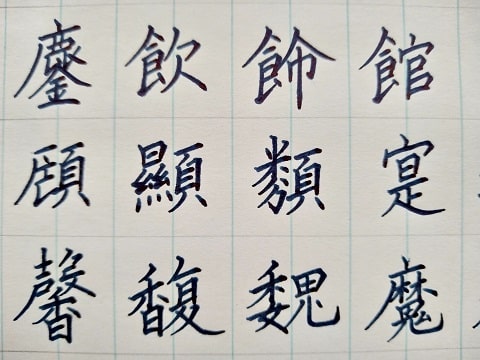 鏖 飲 飾 館
顯 類 寔
馨 馥 魏 魔